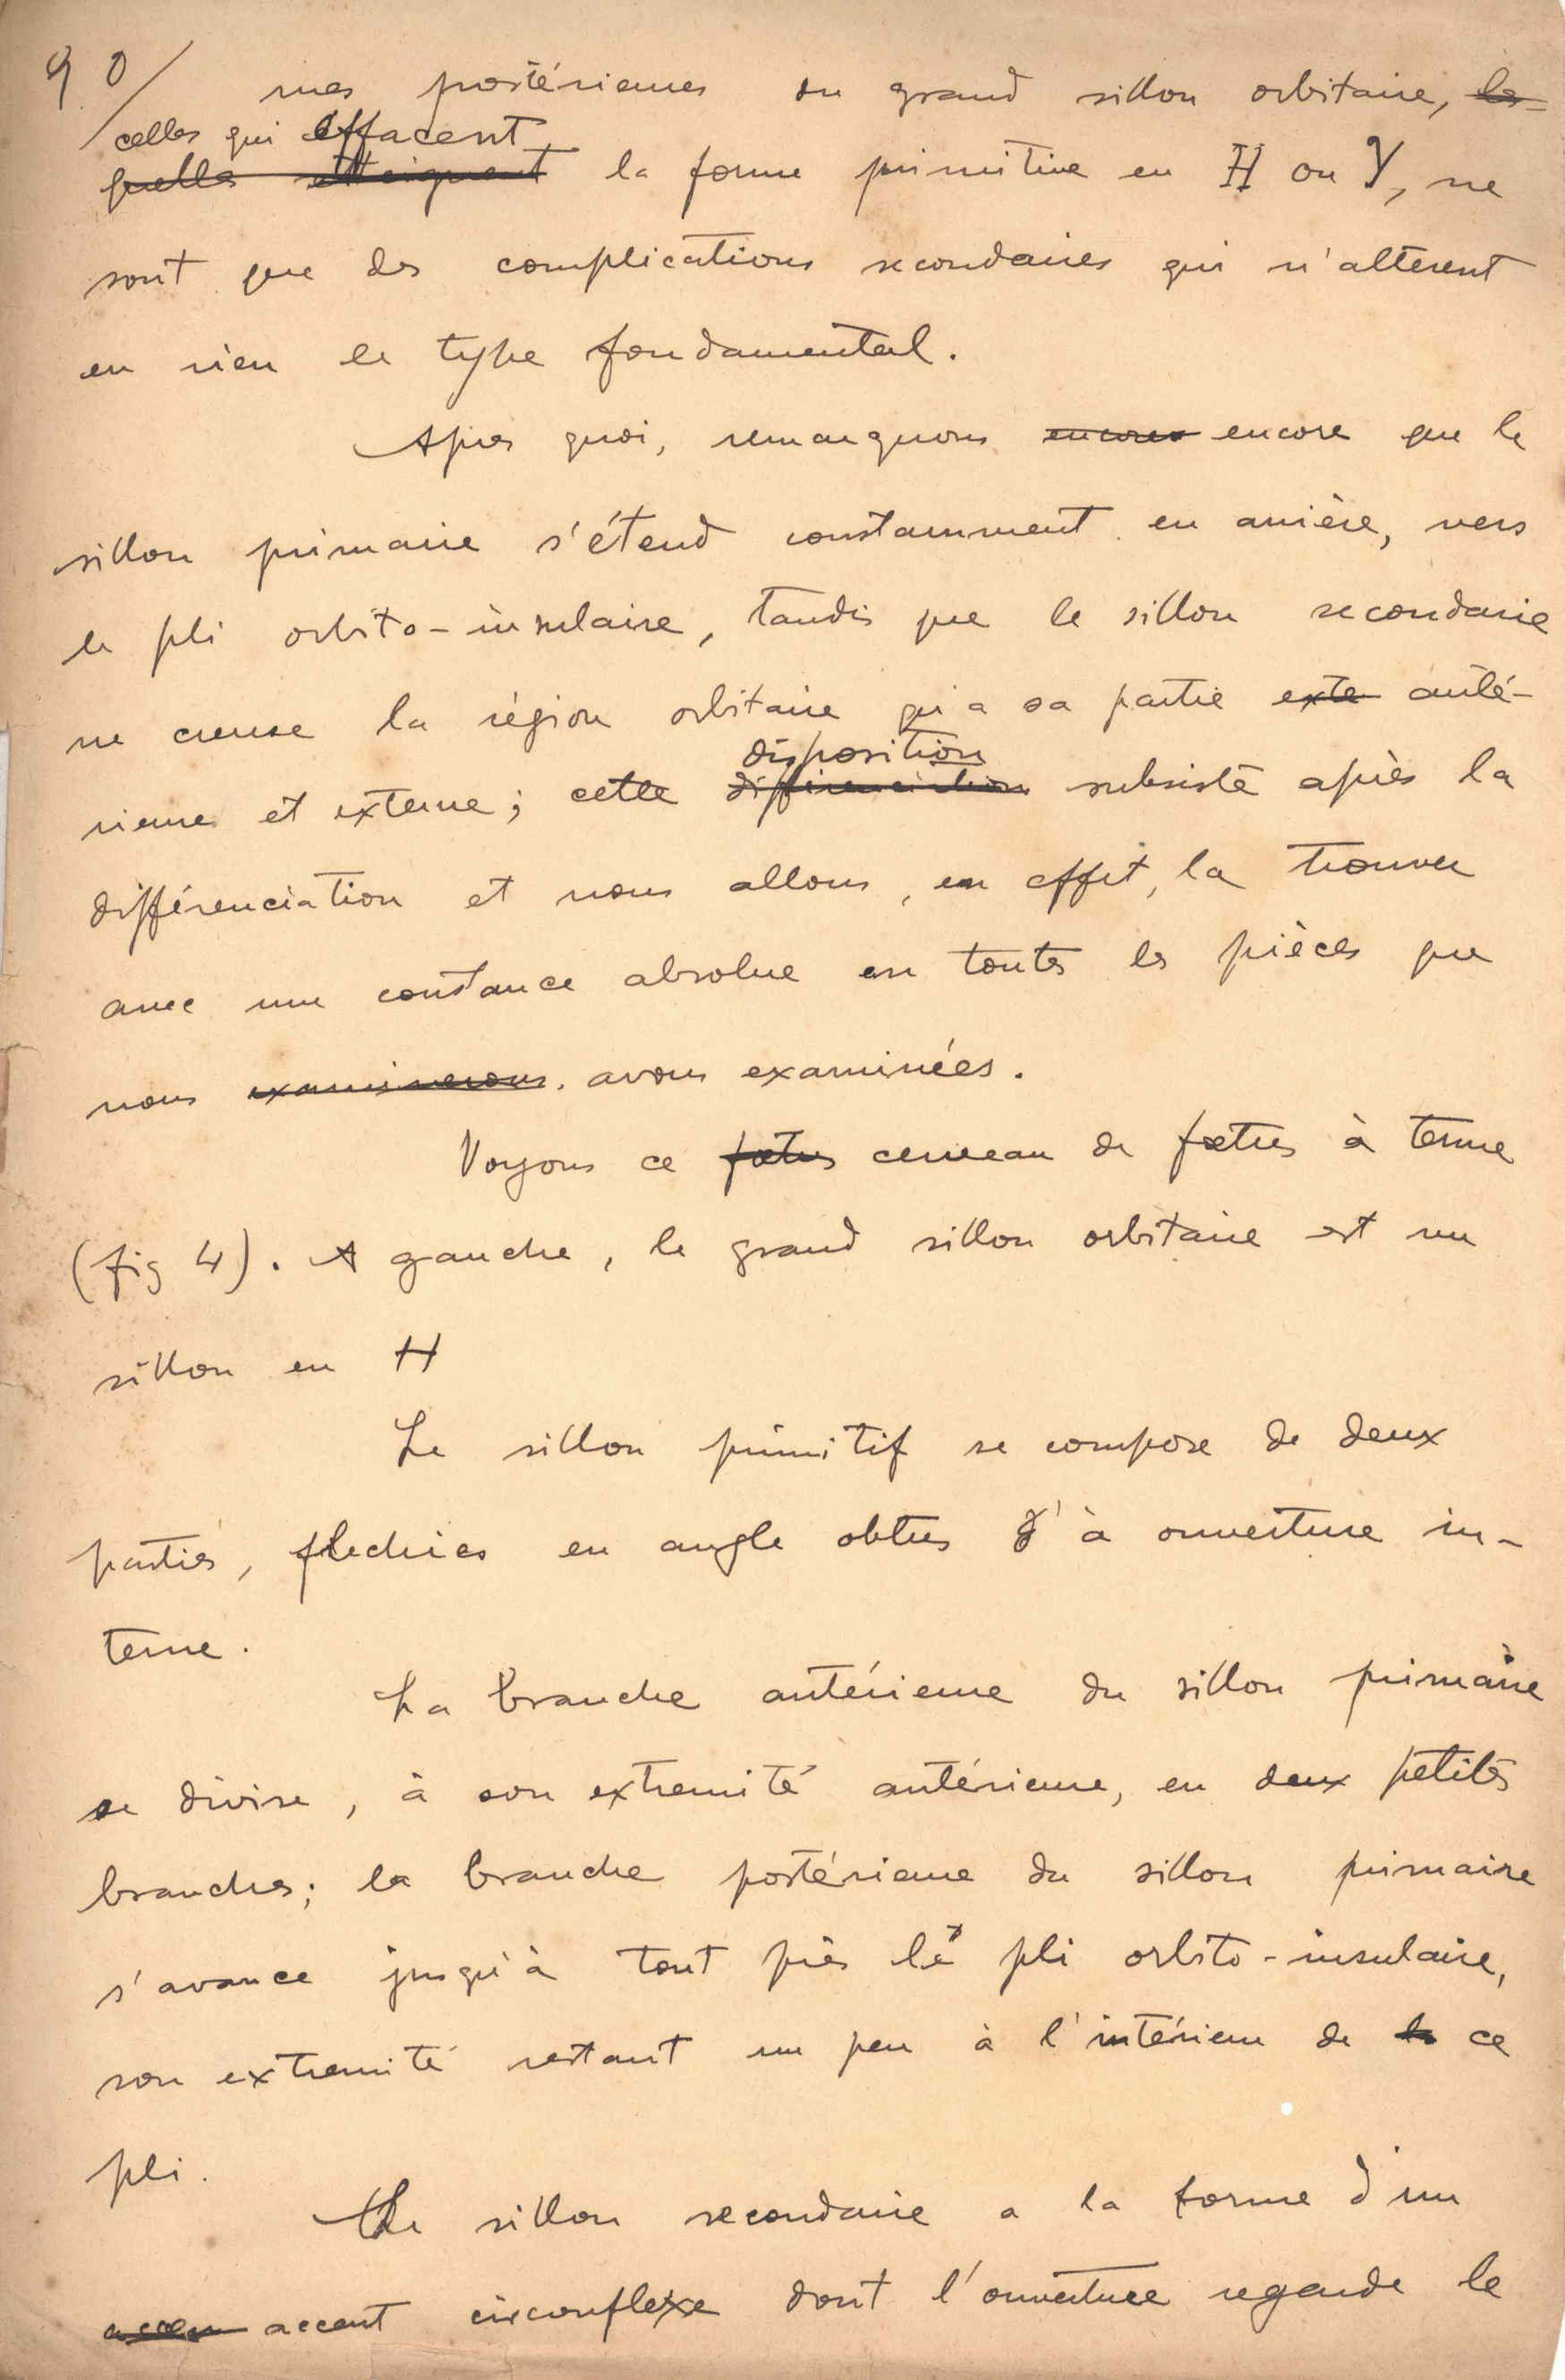 90/ mes postérieures du grand sillon orbitaire, les-
celles qui effacent
quelles atteignent la forme primitive en H ou Y, ne
sont que des complications secondaires qui n'altèrent
en rien le type fondamental.
Apres quoi, remarquons encores encore que le
sillon primaire s'étend constamment en arrière, vers
le pli orbito-insulaire, tandis que le sillon secondaire
ne creuse la région orbitaire qu'a sa partie exte anté-
rieure et externe; cette différenciation subsiste après la
disposition
différenciation et nous allons, en effet, la trouver
avec une constance absolue en toutes les pièces que
nous examinerons. avons examinées.
Voyons ce fœtus cerveau de fœtus à terme
(fig 4). A gauche, le grand sillon orbitaire est un
sillon en H
Le sillon primitif se compose de deux
parties, flechies en angle obtus à ouverture in-
terne.
La branche antérieure du sillon primaire
se divise, à son extremité antérieure, en deux petites
branches; la branche postérieure du sillon primaire
s'avance jusqu'à tout près le pli orbito-insulaire,
son extremité restant un peu à l'intérieur de ce
pli.
Le sillon secondaire a la forme d'un
accen accent circonflexe dont l'ouverture regarde le